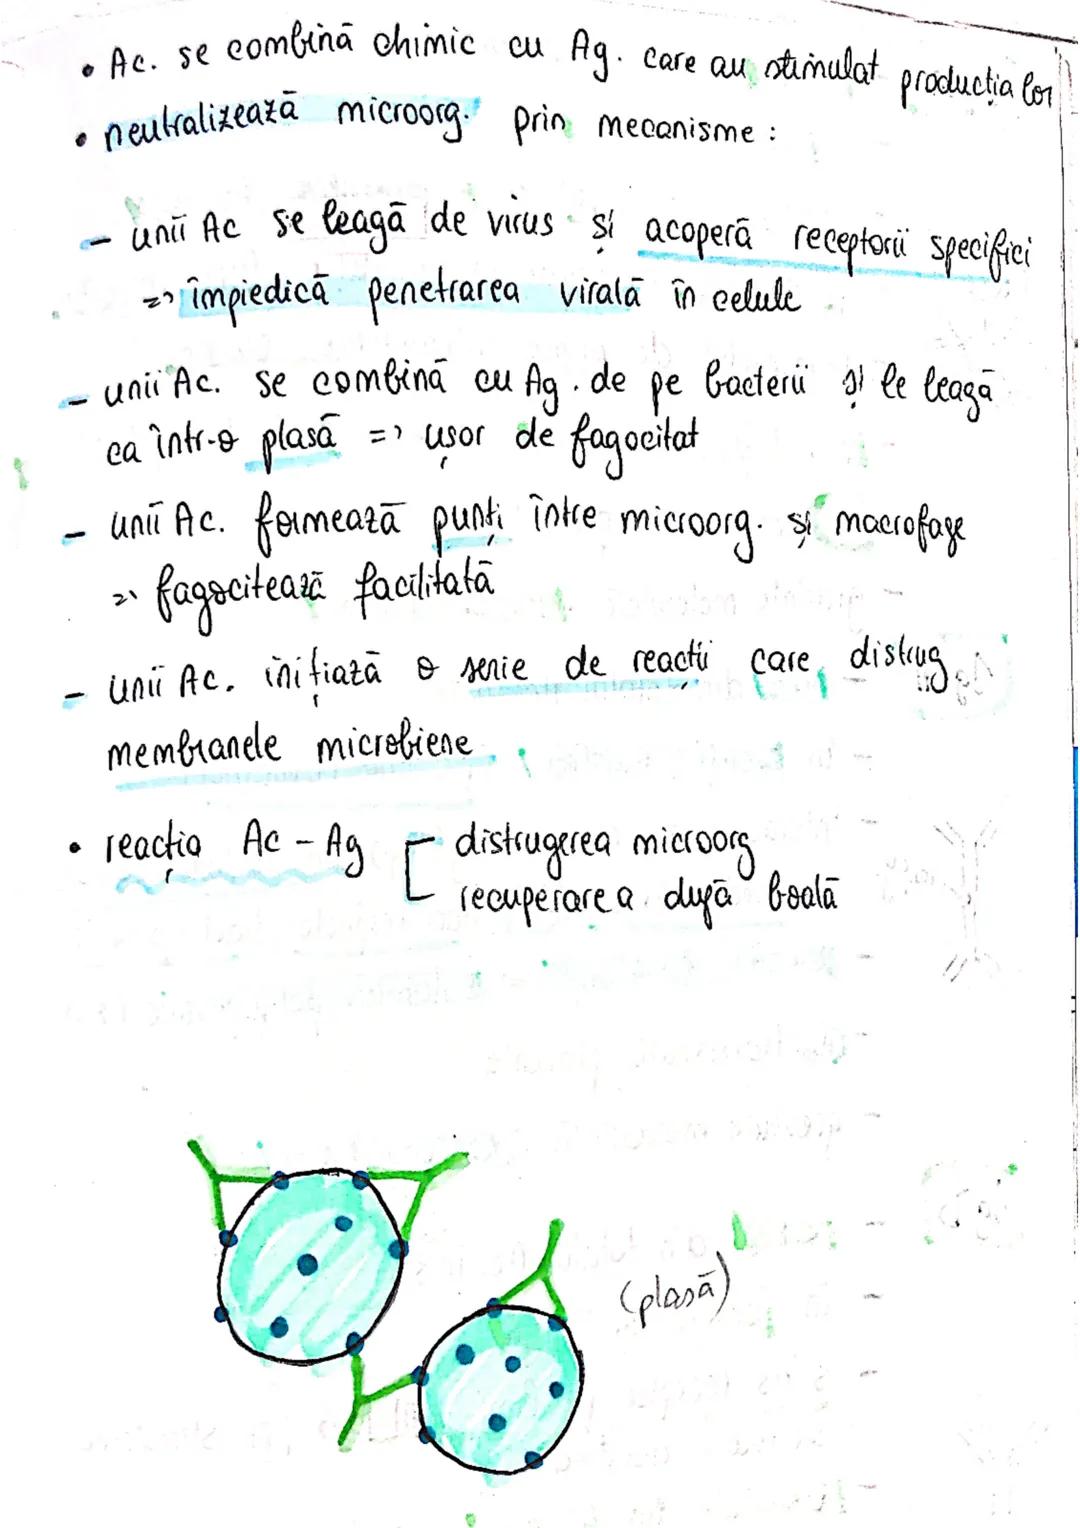 • Ac. se combină chimic cu Ag. care au stimulat producția lor
• neutralizează microorg. prin mecanisme :
- unii Ac se leagă de virus și acoperă receptorii specifici
=> împiedică penetrarea virală în celule
- unii Ac. se combină cu Ag. de pe bacterii și le leagă
ca într-o plasă => ușor de fagocitat
- unii Ac. formează punți între microorg. și macrofage
=> fagocitează facilitată
- unii Ac. inițiază o serie de reacții care distrug
membranele microbiene
• reacția Ac - Ag [ distrugerea microorg
recuperarea după boală
(plasă)